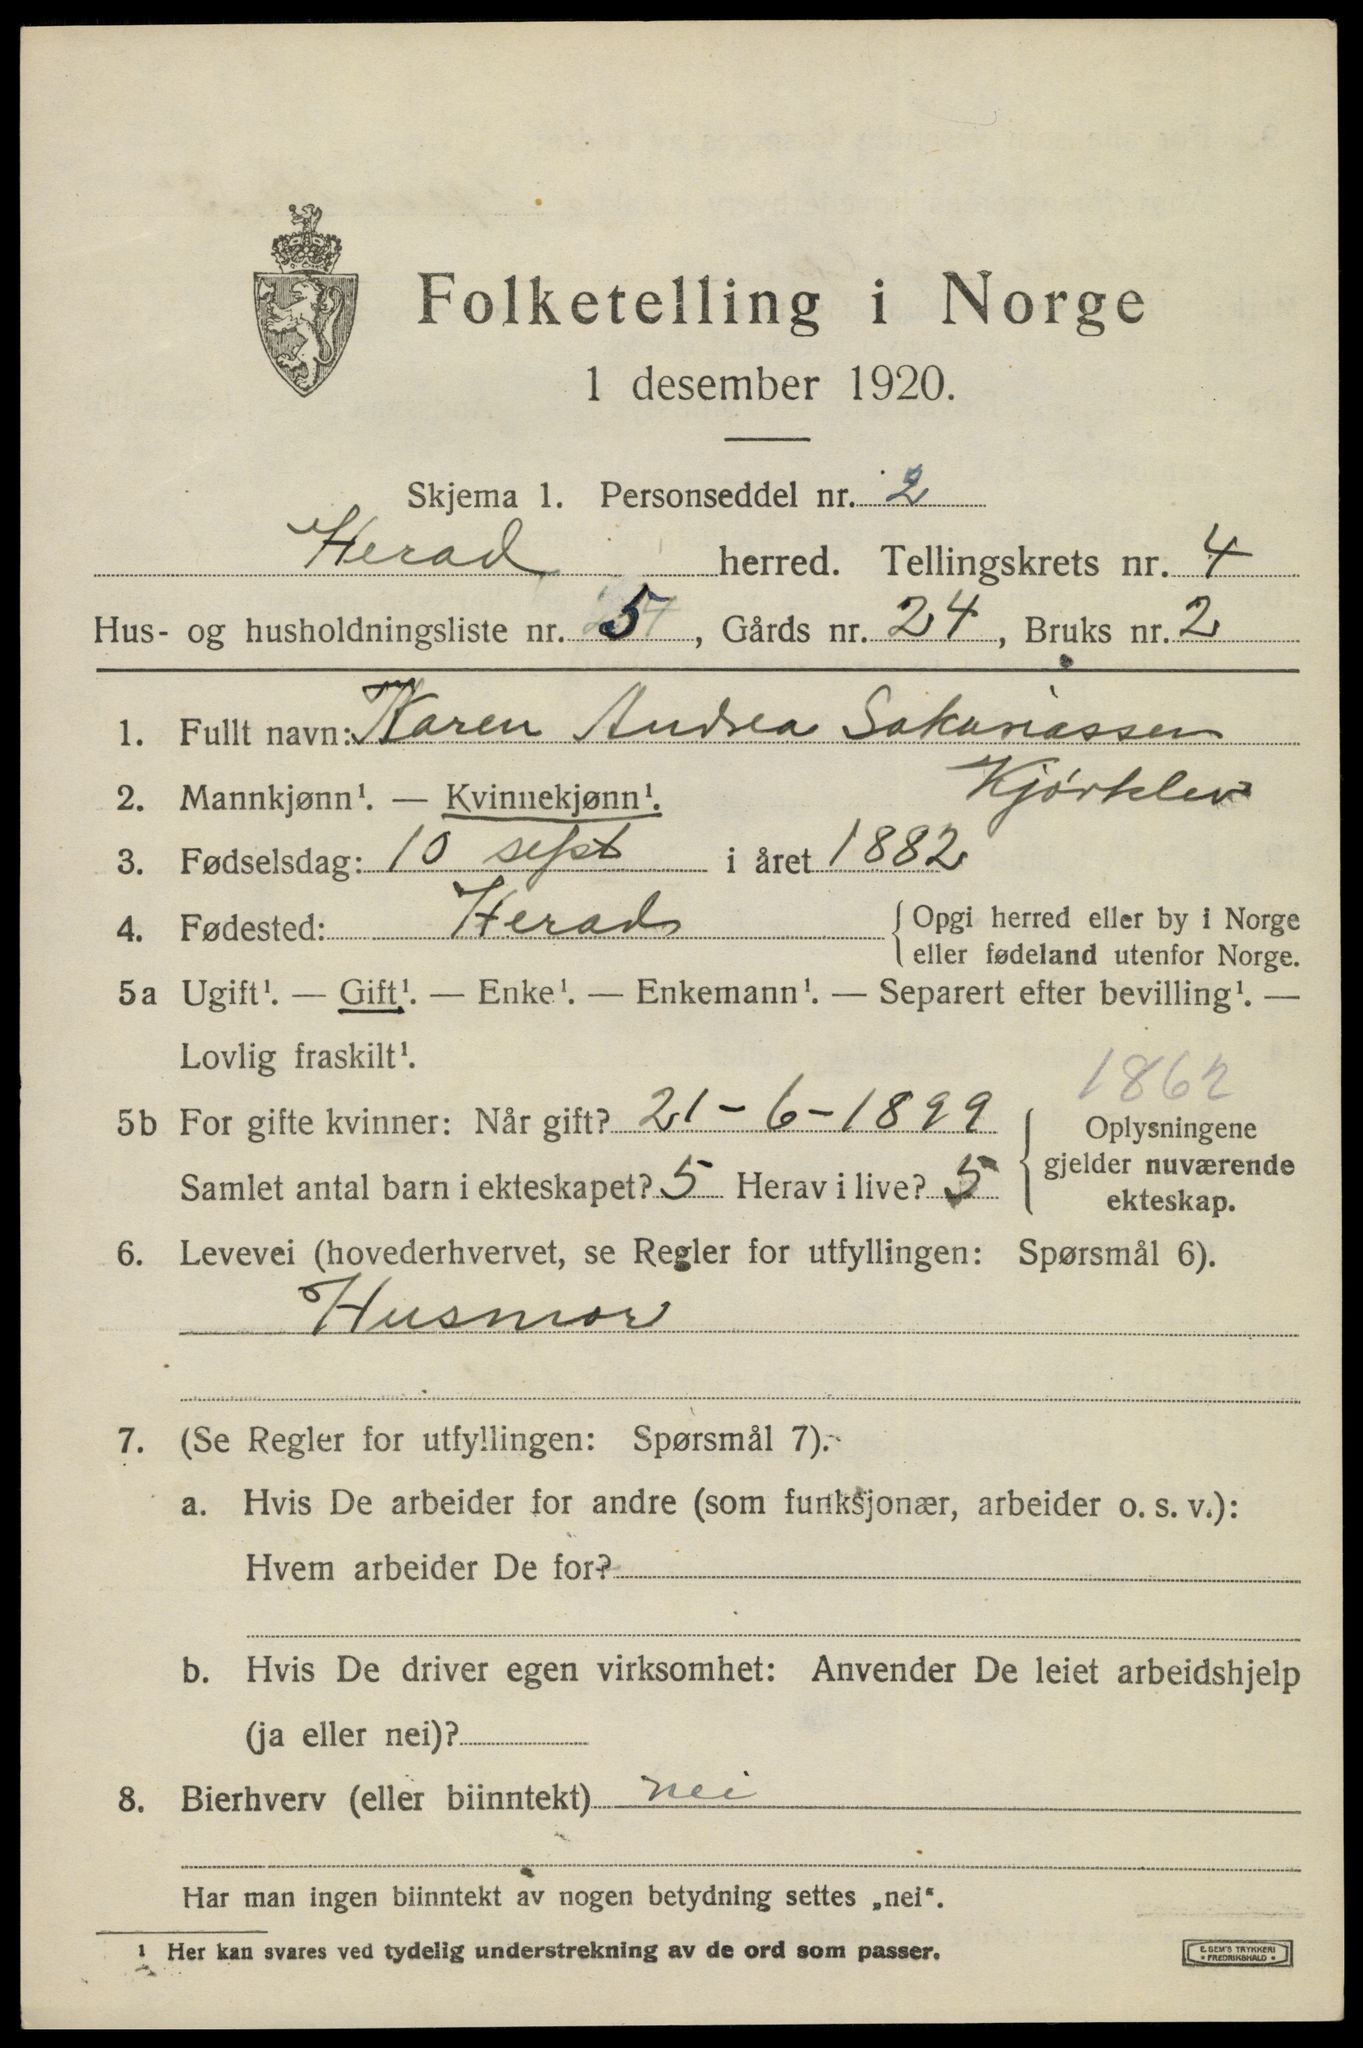 Folketelling i Norge
1 desember 1920.
Skjema 1. Personseddel nr. 2
Herad herred. Tellingskrets nr. 4
Hus- og husholdningsliste nr. 5, Gårds nr. 24, Bruks nr. 2
1. Fullt navn: Karen Andrea Sakariassen
Kjørklev
2. Mannkjønn¹. — Kvinnekjønn¹.
3. Fødselsdag: 10 sept i året 1882
4. Fødested: Herad { Opgi herred eller by i Norge
eller fødeland utenfor Norge.
5a Ugift¹. — Gift¹. — Enke¹. — Enkemann¹. — Separert efter bevilling¹. —
Lovlig fraskilt¹.
1862
5b For gifte kvinner: Når gift? 21-6-1899 { Oplysningene
gjelder nuværende
ekteskap.
Samlet antal barn i ekteskapet? 5 Herav i live? 5
6. Levevei (hovederhvervet, se Regler for utfyllingen: Spørsmål 6).
Husmor
7. (Se Regler for utfyllingen: Spørsmål 7).
a. Hvis De arbeider for andre (som funksjonær, arbeider o. s. v.):
Hvem arbeider De for?
b. Hvis De driver egen virksomhet: Anvender De leiet arbeidshjelp
(ja eller nei)?
8. Bierhverv (eller biinntekt) nei
Har man ingen biinntekt av nogen betydning settes „nei“.
¹ Her kan svares ved tydelig understrekning av de ord som passer.
E. SEM'S TRYKKERI
FREDRIKSHALD